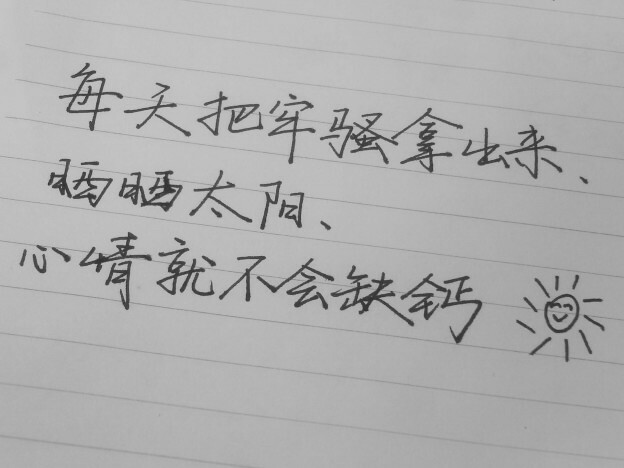 每天把牢骚拿出来、
晒晒太阳、
心情就不会缺钙